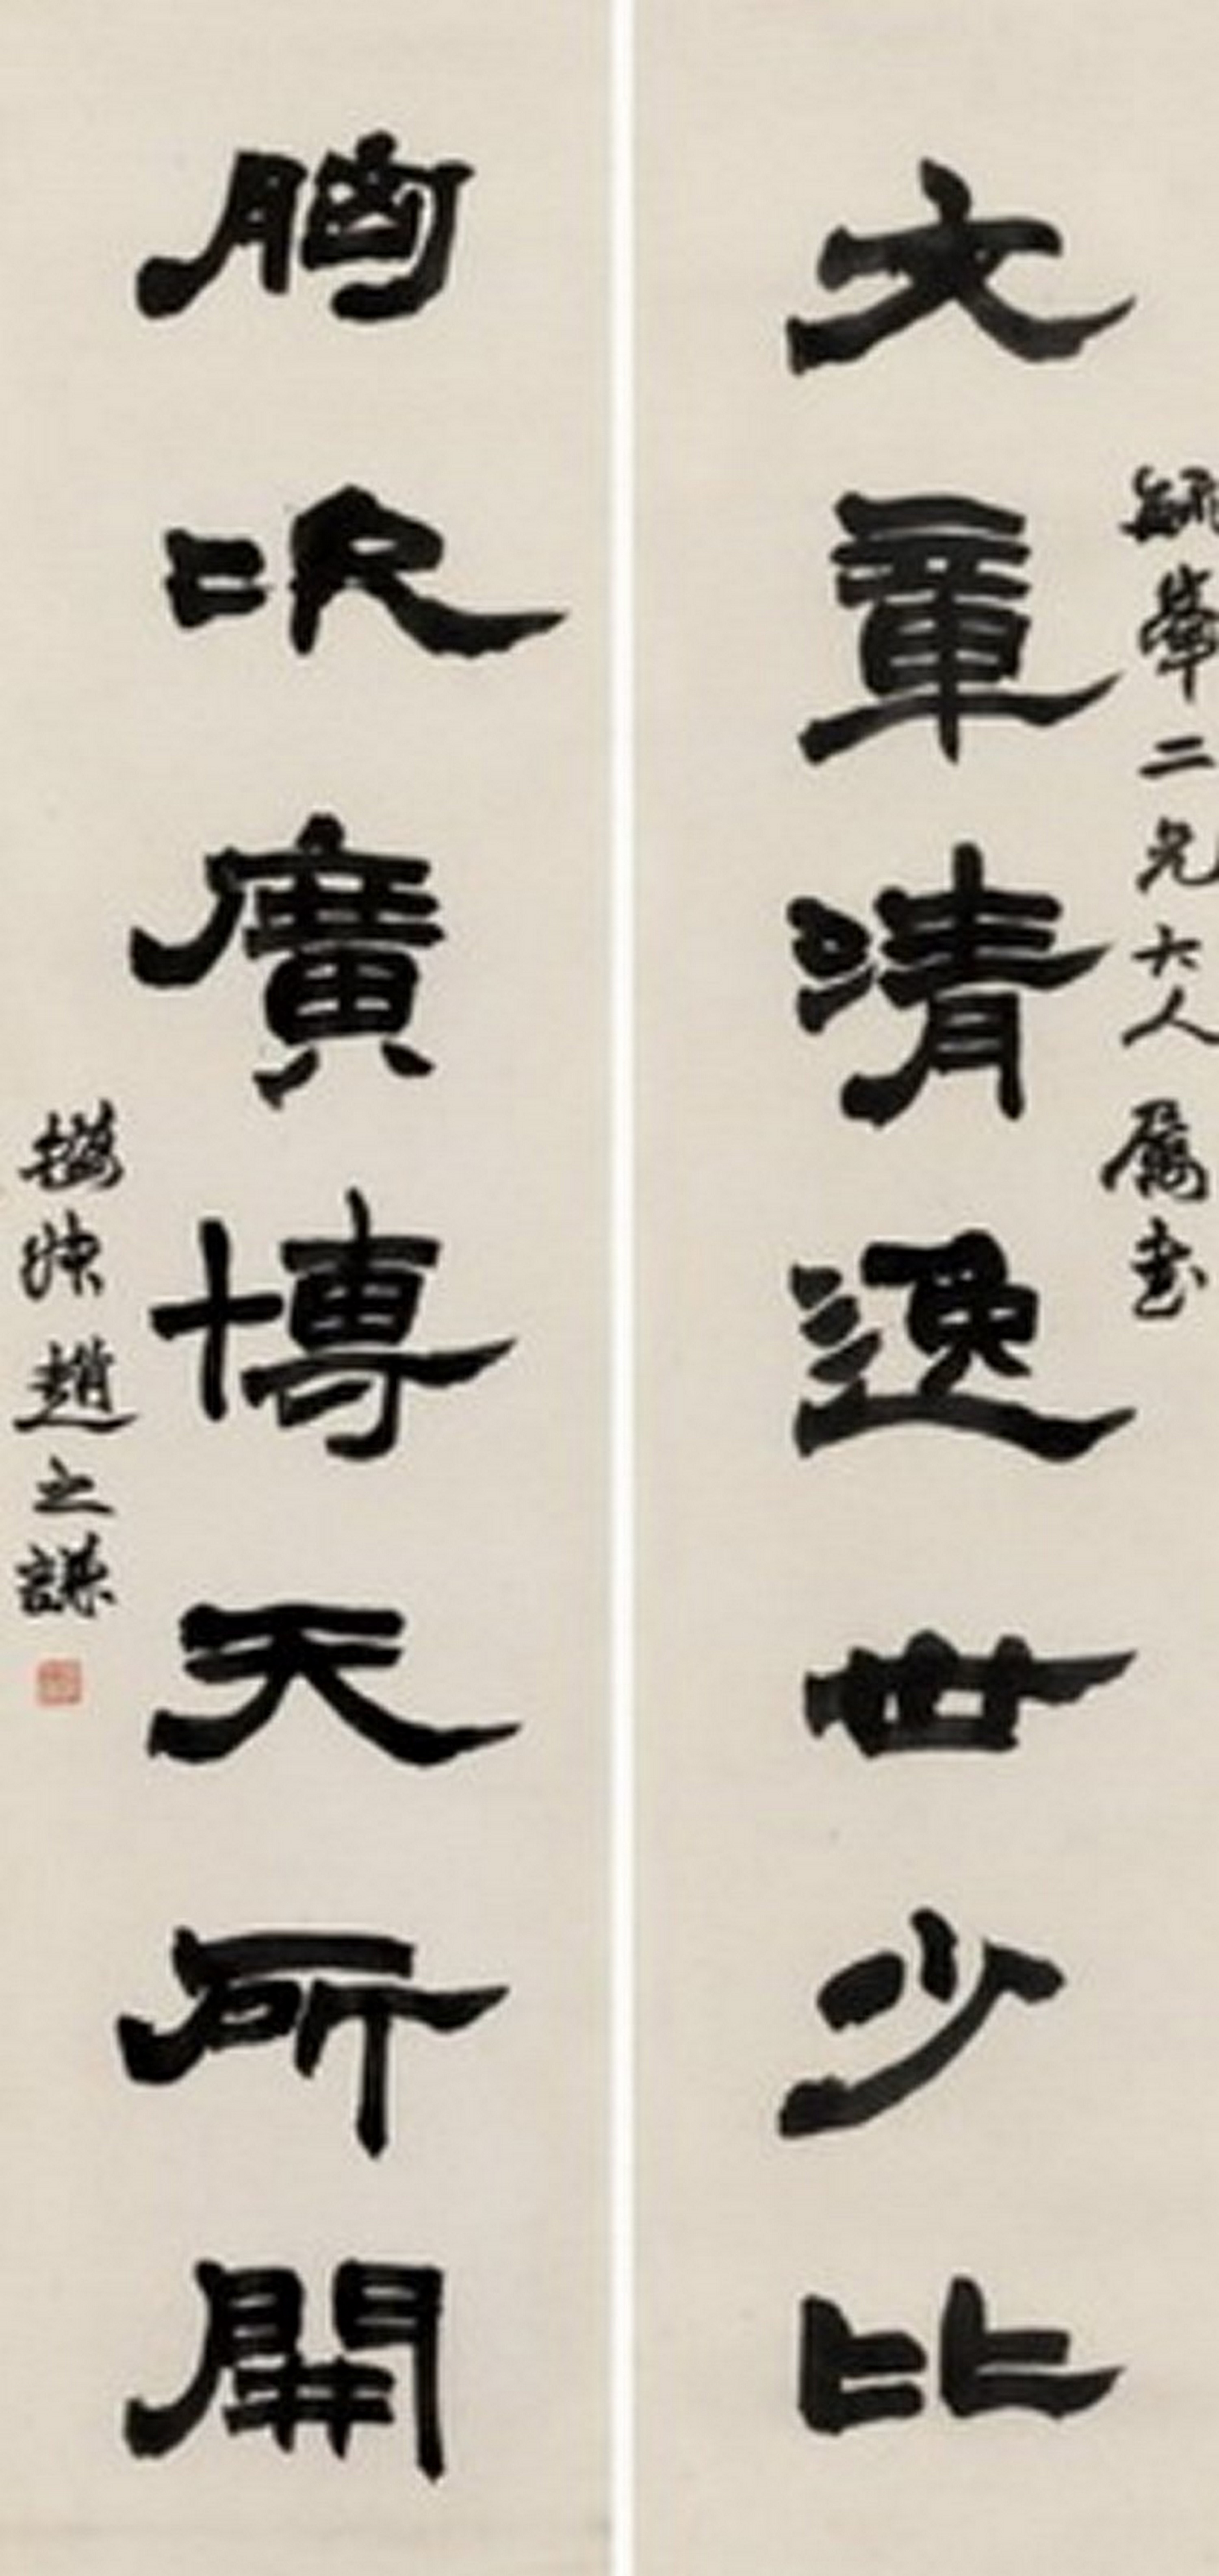 二兄大人屬書
文章清逸世少比
胸次廣博天所開
撝叔趙之謙